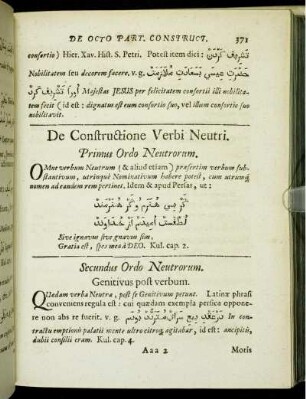 DE OCTO PART. CONSTRUCT. 371
consortio) Hier. Xav. Hist. S. Petri. Potest item dici: تشریف کردن
Nobilitatem seu decorem facere, v. g. حضرت عیسی بسعادت ملازمت
Majestas JESUS per felicitatem consortii illi nobilita-
tem fecit (id est: dignatus est eum consortio suo, vel illum consortio suo
nobilitavit.
De Constructione Verbi Neutri.
Primus Ordo Neutrorum.
OMne verbum Neutrum (& aliud etiam) præsertim verbum sub-
stantivum, utrinque Nominativum habere potest, cum utrumq;
nomen ad eandem rem pertinet. Idem & apud Persas, ut:
گر بی هنرم وگر هنرمند
لطفست امیدم از خداوند
Sive ignavus sive gnavus sim,
Gratia est, spes mea à DEO. Kul. cap. 2.
Secundus Ordo Neutrorum.
Genitivus post verbum.
QUædam verba Neutra, post se Genitivum petunt. Latinæ phrasi
conveniens regula est: cui quædam exempla persica oppone-
re non abs re fuerit. v. g. In con-
tractu emptionis palatii mente ultro citroq; agitabar, id est: ancipitis,
dubii consilii eram. Kul. cap. 4.
Aaa 2 Motis